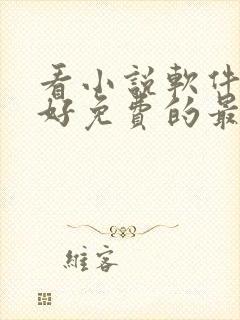 看小説軟件
好免費的最
維客